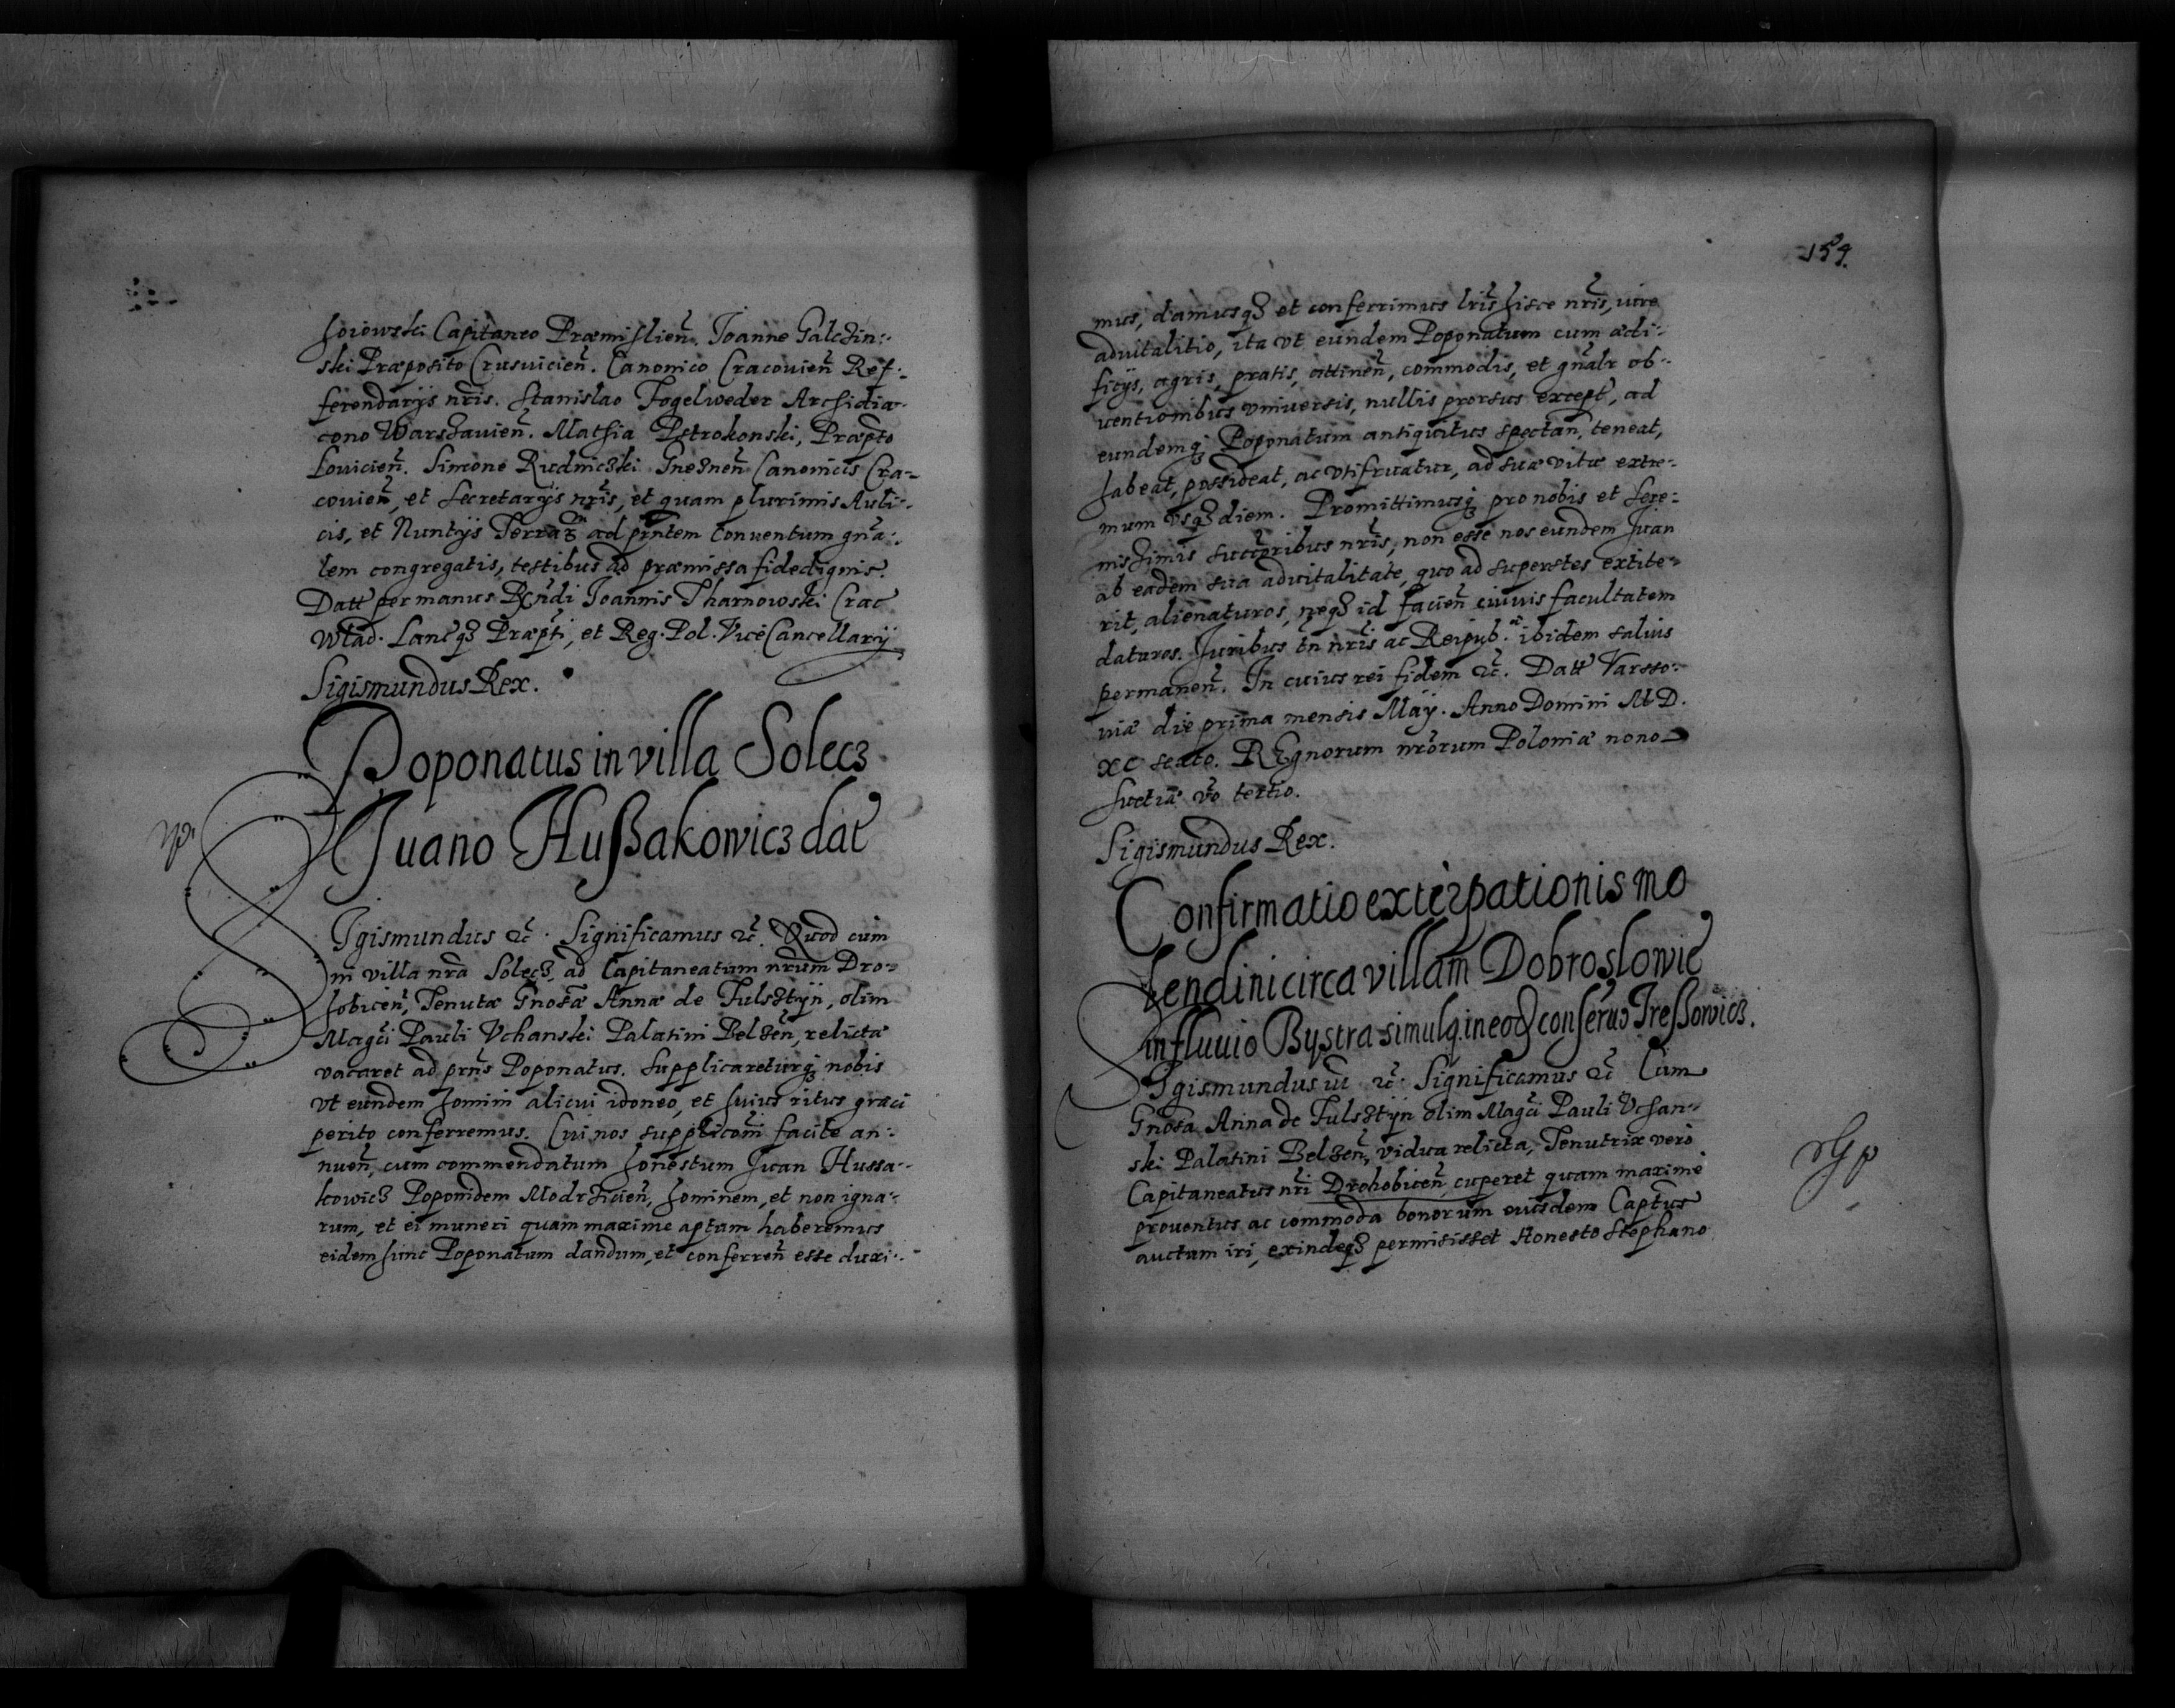 hoiowski Capitaneo Præmislien̄. Joanne Galczin:
ski Præposito Crusvicien̄. Canonico Cracovien̄ Ref:
ferendarijs nr̄is. Stanislao Fogelweder Archidia-
cono Warszavien̄. Mathia Pstrokonski, Præpto
Lovicien̄. Simone Rudniczki Gneznen̄ Canonicis Cra-
covien̄, et Secretarijs nr̄is, et quam plurimis Auli-
cis, et Nuntijs Terraꝝ ad pr̄ntem Conventum gn̄a:
lem congregatis, testibus ad præmissa fidedignis.
Datt per manus Rn̄di Joannis Tharnowski Crac̄
Wlad. Lanc̄qȝ Præpti, et Reg. Pol. ViceCancellarij
Sigismundus Rex.
Poponatus in villa Solecz
Iuano Hußakowicz dat̄
SIgismundus ꝛc̄. Significamus ꝛc̄. Quod cum
in villa nr̄a Solecz, ad Capitaneatum nr̄um Dro-
hobicen̄, Tenutæ Gnosæ Annæ de Fulsztijn, olim
Magc̄i Pauli Vchanski Palatini Belzen̄, relictæ
vacaret ad prn̄s Poponatus. Supplicareturqȝ nobis
vt eundem homini alicui idoneo, et huius ritus græci
perito conferremus. Cui nos supplicōni facile an:
nuen̄, cum commendatum honestum Iuan Hussa-
kowicz Poponidem Modrzicien̄, hominem, et non igna-
rum, et ei muneri quam maxime aptum haberemus
eidem hunc Poponatum dandum, et conferren̄ esse duxi-
154.
mus, damusqȝ et conferrimus lr̄is hisce nr̄is, iure
advitalitio, ita vt eundem Poponatum cum ædi-
ficijs, agris, pratis, attinen̄, commodis, et gn̄alr ob-
uentionibus vniuersis, nullis prorsus except, ad
eundemqȝ Poponatum antiquitus spectan̄, teneat,
habeat, possideat, ac vtifruatur, ad suæ vitæ extre-
mum vsqȝ diem. Promittimusqȝ pro nobis et Sere-
nissimis succ̄oribus nr̄is, non esse nos eundem Iuan
ab eadem sua advitalitate, quo ad superstes extite-
rit, alienaturos, neqȝ id facien̄ cuivis facultatem
daturos. Iuribus tn̄ nr̄is ac Reipub.æ ibidem salvis
permanen̄. In cuius rei fidem ꝛc̄. Datt Varsso-
uiæ die prima mensis Maij. Anno Domini MD.
XC sexto. REgnorum nr̄orum Poloniæ nono
Suetiæ vō tertio.
Sigismundus Rex.
Confirmatio exterpationis mo
lendini circa villam Dobroslowie
in fluuio Bystra simulqȝ in eod̄ conseruo Ireßowicz.
SIgismundus iii ꝛc̄. Significamus ꝛc̄ Cum
Gnosa Anna de Fulsztijn olim Magc̄i Pauli Vchan-
ski Palatini Belzen̄, vidua relicta, Tenutrix vero
Capitaneatus nr̄i Drohobicen̄, cuperet quam maxime
prouentus ac commoda bonorum eiusdem Captus
auctum iri, exindeqȝ permisisset Honesto Stephano